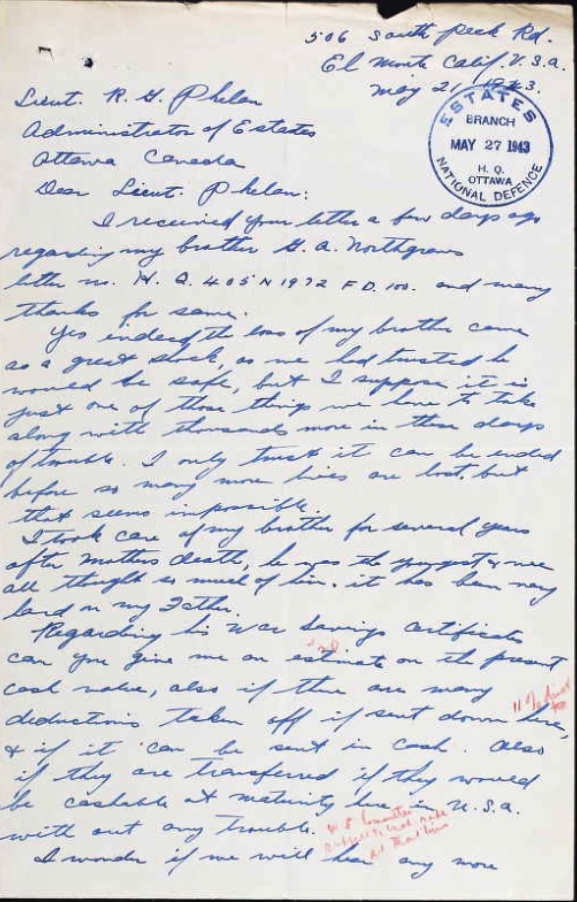 506 South Peck Rd.
El Monte Calif. U.S.a.
May 21, 1943.
ESTATES
BRANCH
MAY 27 1943
H. Q.
OTTAWA
NATIONAL DEFENCE
Lieut. R. G. Phelan
Administrator of Estates
Ottawa Canada
Dear Lieut. Phelan:
I received your letter a few days ago
regarding my brother G. A. Northgraves
letter no. H. Q. 405 N 1972 F D. 100. and many
thanks for same.
Yes indeed the loss of my brother came
as a great shock, as we had trusted he
would be safe, but I suppose it is
just one of those things we have to take
along with thousands more in these days
of trouble. I only trust it can be ended
before so many more lives are lost. but
that seems impossible.
I took care of my brother for several years
after Mothers death, he was the youngest & we
all thought so much of him. it has been very
hard on my Father.
Regarding his War Savings Certificates
can you give me an estimate on the present
cash value, also if there are many
deductions taken off if sent down here,
& if it can be sent in cash. Also
if they are transferred if they would
be cashable at maturity here in U.S.a.
with out any trouble.
I wonder if we will hear any more